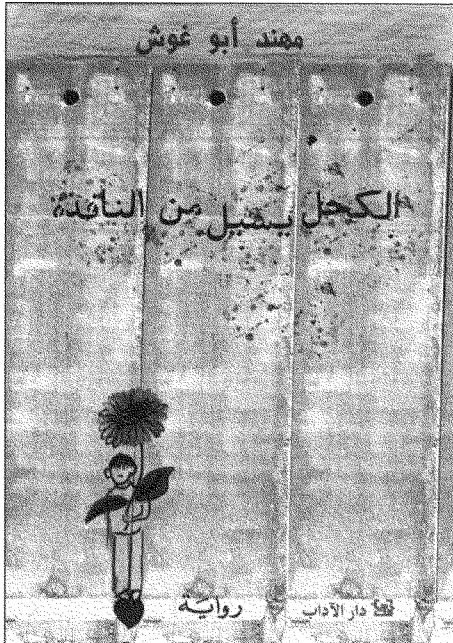 مهند أبو غوش
الكحل يسيل من النافذة
رواية
دار الآداب